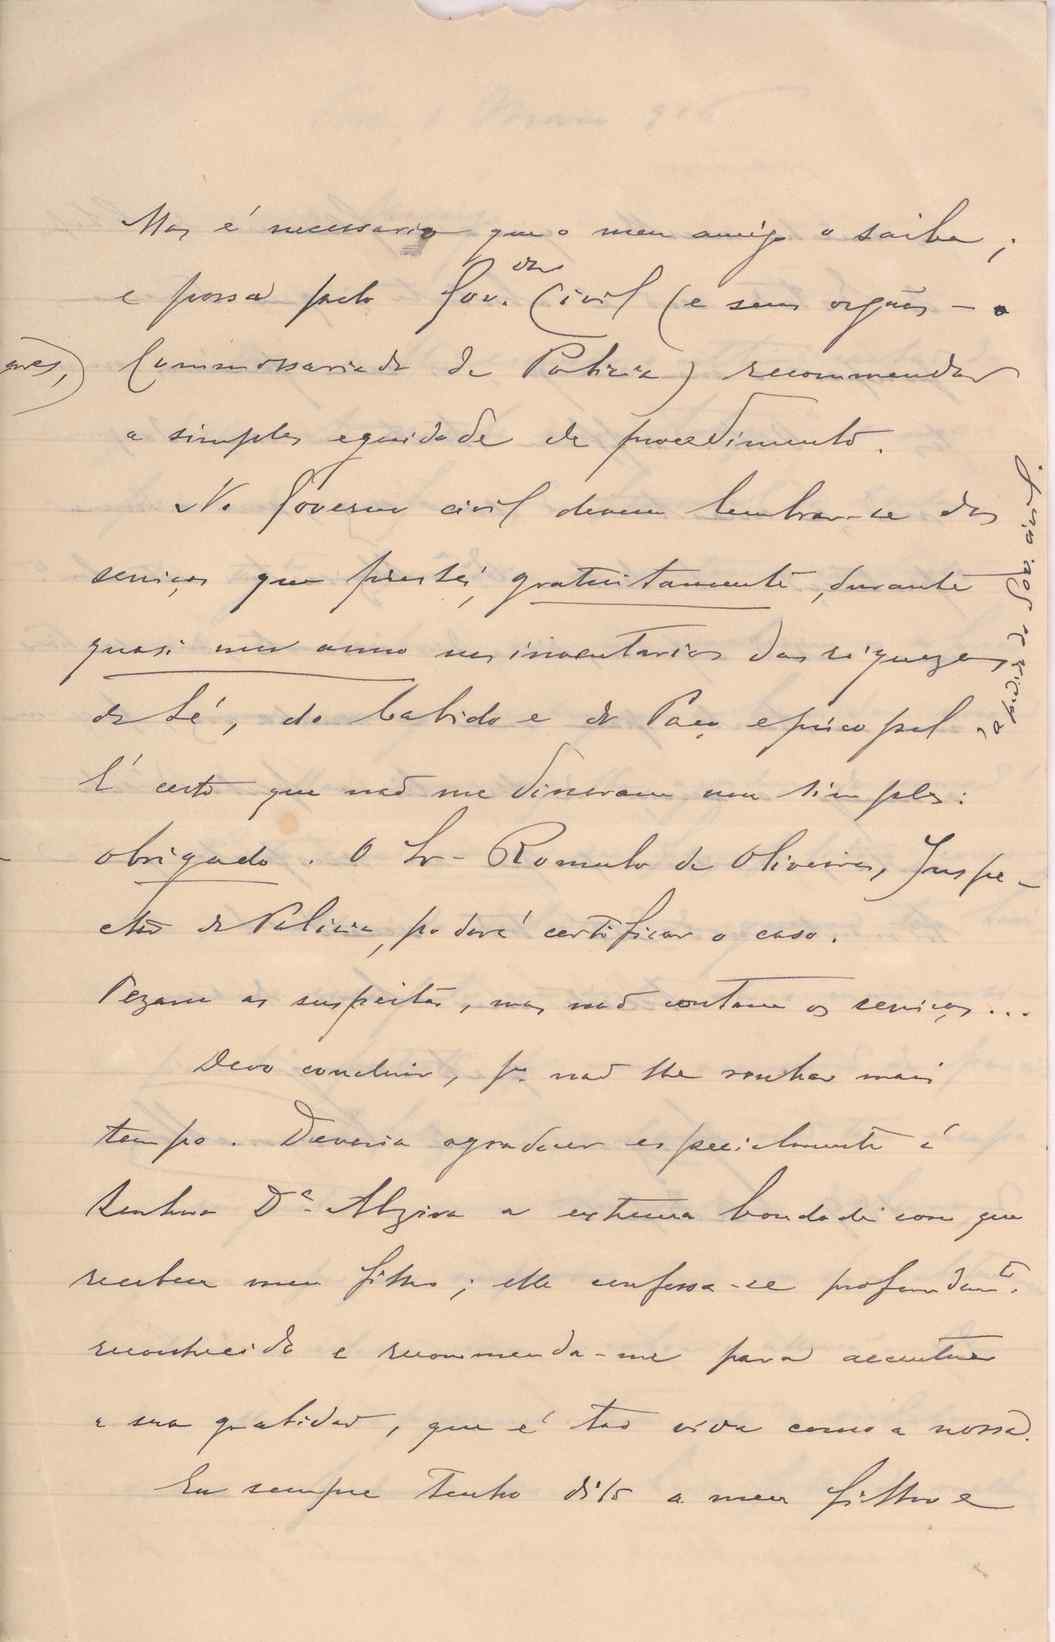 Mas é necessario que o meu amigo o saiba;
e possa pelo Gov.dor Civil (e seus orgãos — o
Commissariado de Policia) recommendar
a simples equidade de procedimento.
No Governo civil devem lembrar-se dos
serviços que prestei, gratuitamente, durante
quasi um anno nos inventarios das riquezas
da Sé, do Cabido e do Paço episcopal
É certo que não me disseram um simples:
obrigado. O Sr. Romulo de Oliveira, Inspe-
ctor de Policia, poderá certificar o caso.
Pezam as suspeitas, mas não contam os serviços...
Devo concluir, pa. não lhe roubar mais
tempo. Deveria agradecer especialmente á
Senhora Da. Alzira a extrema bondade com que
recebeu meu filho; elle confessa-se profundamte.
reconhecido e recommenda-me para accentuar
a sua gratidão, que é tão viva como a nossa.
Eu sempre tenho dito a meu filho e